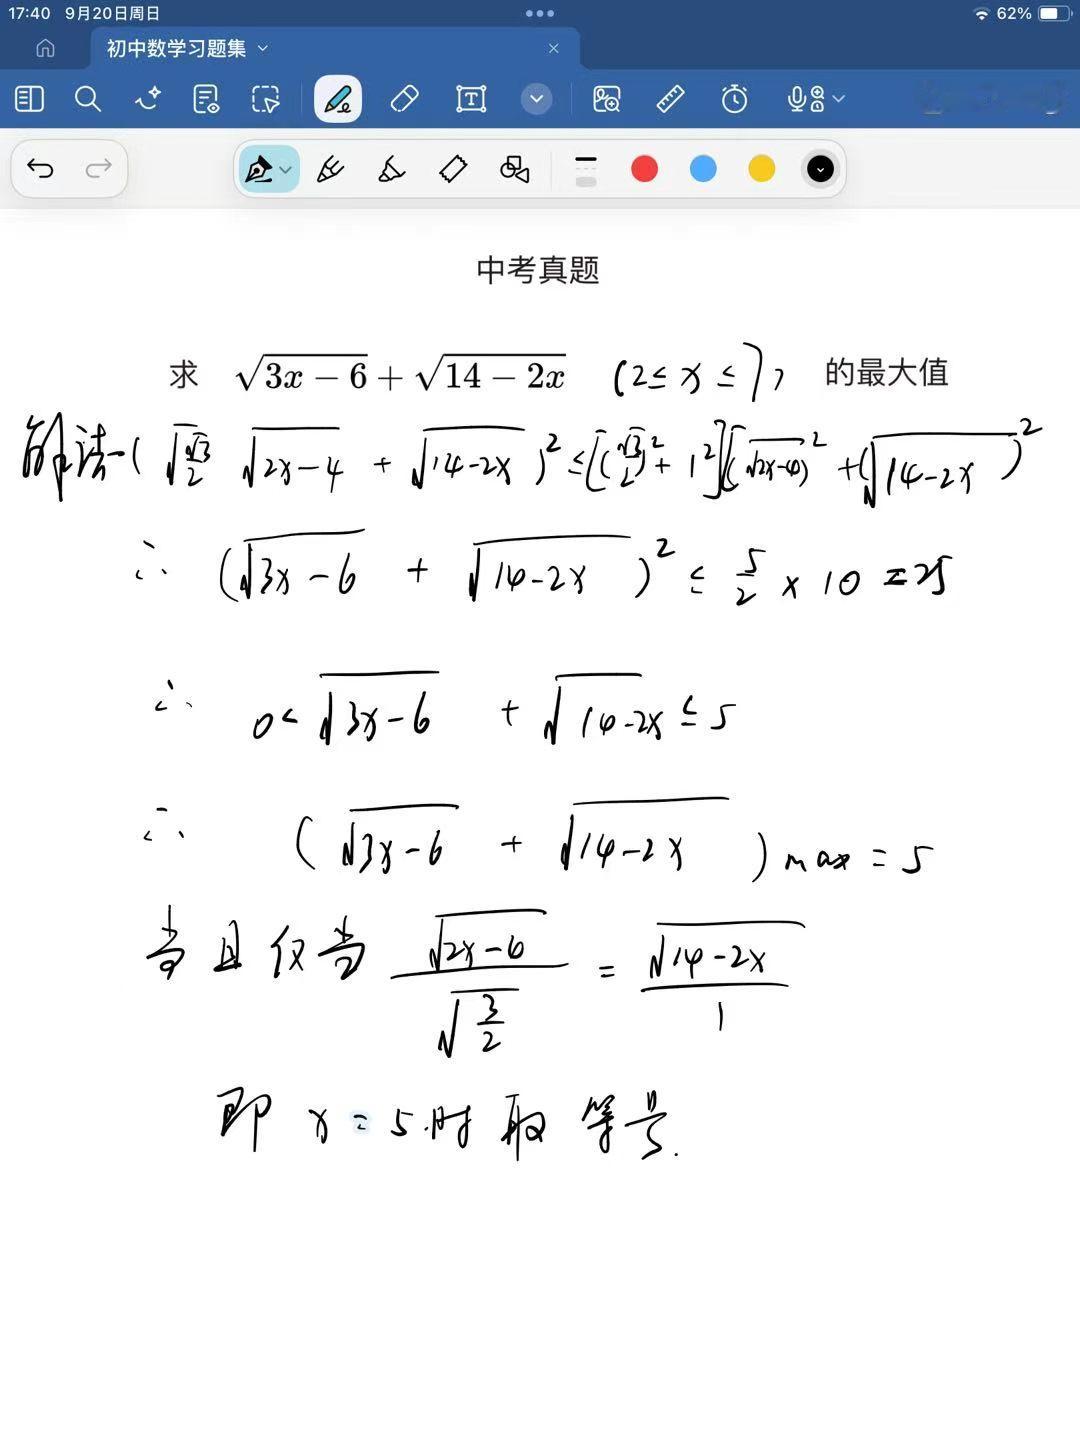 17:40 9月20日周日 62%
初中数学习题集
中考真题
求 √(3x − 6) + √(14 − 2x) (2≤x≤7) 的最大值
解法一 (√(√3/2) √(2x−4) + √(14−2x))² ≤ [(√3/2)² + 1²][(√(2x−4))² + (√(14−2x))²
∴ (√(3x−6) + √(14−2x))² ≤ 5/2 × 10 = 25
∴ 0< √(3x−6) + √(14−2x) ≤ 5
∴ (√(3x−6) + √(14−2x)) max = 5
当且仅当 √(2x−6)/√(3/2) = √(14−2x)/1
即 x = 5.时取等号.